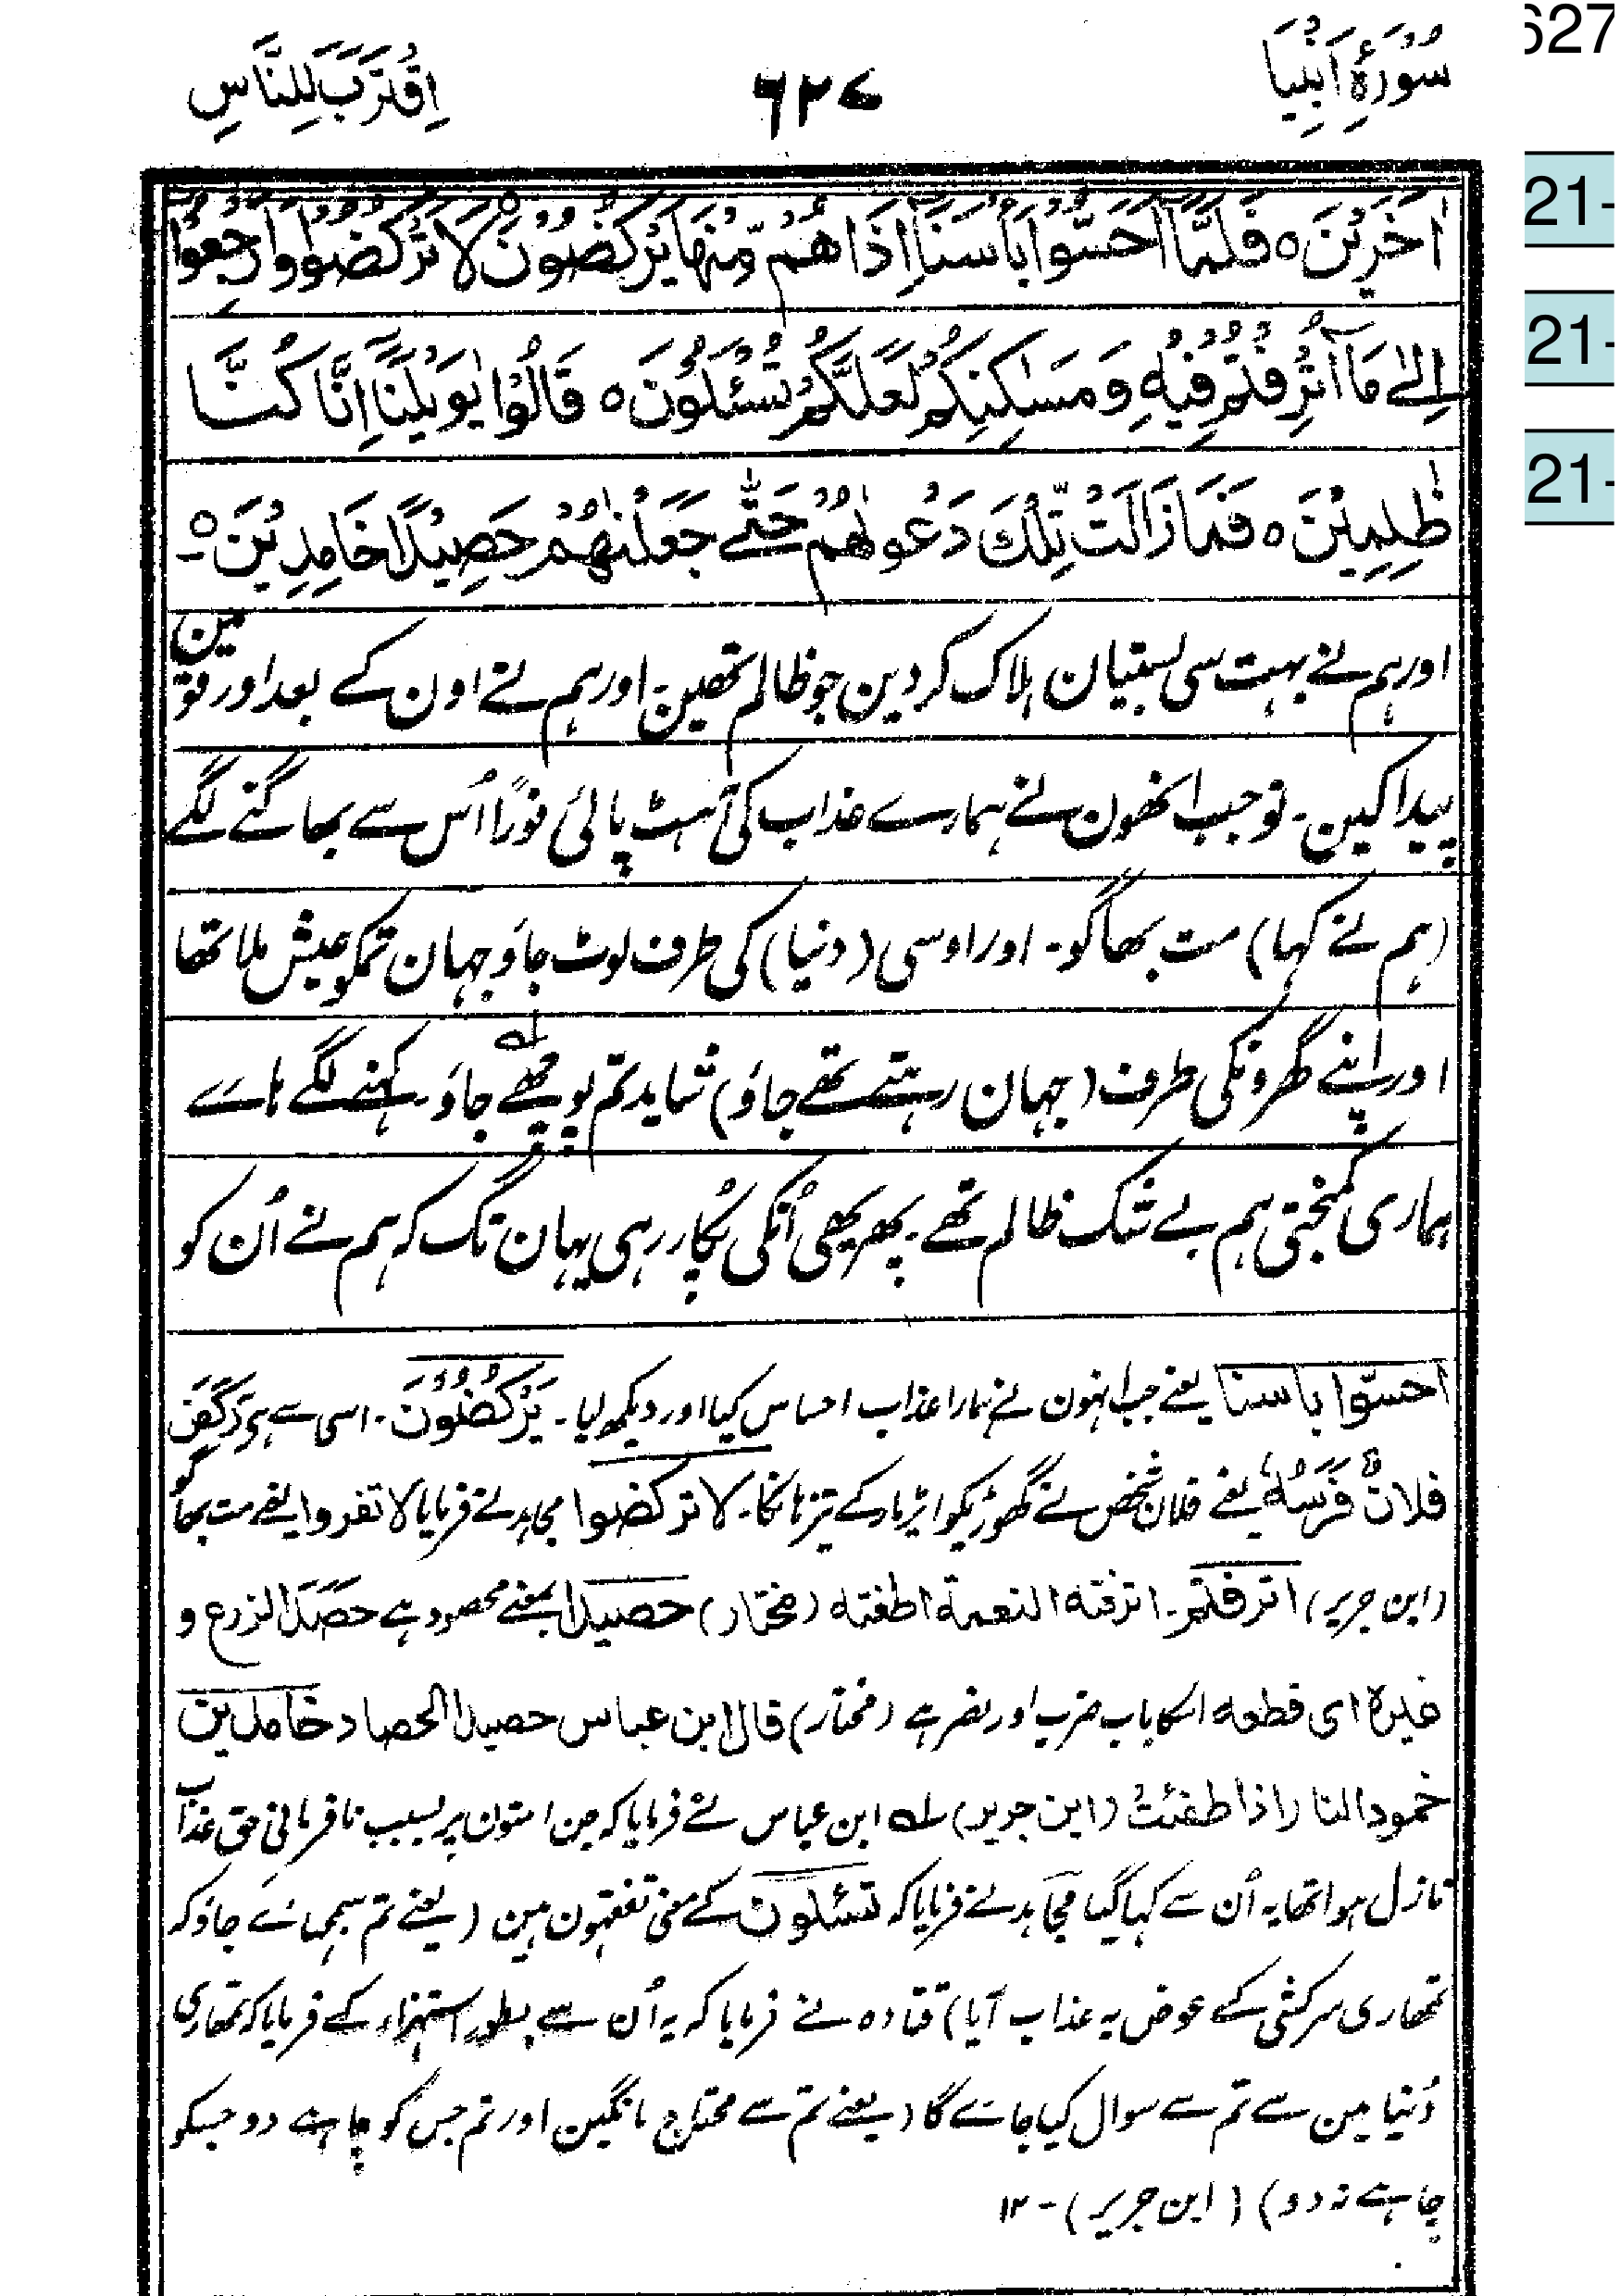 627
سُوْرَۂِ اَنْبِيَا ٦٢٧ اِقْتَرَبَ لِلنَّاسِ
21-
21-
21-
اٰخَرِيْنَ ه فَلَمَّآ اَحَسُّوْا بَاْسَنَآ اِذَا هُمْ مِّنْهَا يَرْكُضُوْنَ ه لَا تَرْكُضُوْا وَارْجِعُوْا
اِلٰى مَآ اُتْرِفْتُمْ فِيْهِ وَمَسٰكِنِكُمْ لَعَلَّكُمْ تُسْئَلُوْنَ ه قَالُوْا يٰوَيْلَنَآ اِنَّا كُنَّا
ظٰلِمِيْنَ ه فَمَا زَالَتْ تِّلْكَ دَعْوٰىهُمْ حَتّٰى جَعَلْنٰهُمْ حَصِيْدًا خَامِدِيْنَ ه-
اور ہم نے بہت سی بستیان ہلاک کر دین جو ظالم تھین۔ اور ہم نے اون کے بعد اور قومین
پیدا کین۔ تو جب انھون نے ہمارے عذاب کی آہٹ پائی فورًا اُس سے بھاگنے لگے
(ہم نے کہا) مت بھاگو۔ اور اوسی (دنیا) کی طرف لوٹ جاؤ جہان تمکو عیش ملا تھا
اور اپنے گھرونکی طرف (جہان رہتے تھے جاؤ) شاید تم پوچھے جاؤ۔ لہ کہنے لگے ہاے
ہماری کمبختی ہم بے شک ظالم تھے۔ پھر یھی اُنکی پُکار رہی یہان تک کہ ہم نے اُن کو
احسّوا باسنا یعنے جب انہون نے ہمارا عذاب احساس کیا اور دیکھ لیا۔ يَرْكُضُوْنَ۔ اسی سے ہی رَكَضَ
فلانٌ فَرَسُهٗ یعنے فلان شخص نے گھوڑیکو ایڑ مارکے تیز ہانکا۔ لا تركضوا مجاہد نے فرمایا لا تفروا یعنے مت بھاگو
(ابن جریر) اترفتم۔ اترفته النعمة اطغته (مختار) حصيدا بمعنے محصود ہے حَصَدَ الزرع و
غيره اى قطعه اسکا باب ضرب اور نصر ہے (مختار) قال ابن عباس حصيدا الحصاد خامدين
خمود النار اذا طفئت (ابن جرير) لہ ابن عباس نے فرمایا کہ جن امتون پر بسبب نافرمانی حق عذاب
نازل ہوا تھا یہ اُن سے کہا گیا مجاہد نے فرمایا کہ تسئلون کے معنی تفقہون ہین (یعنے تم سمجھائے جاؤ کہ
تمھاری سرکشی کے عوض یہ عذاب آیا) قتادہ نے فرمایا کہ یہ اُن سے بطور استہزاء کے فرمایا کہ تمھاری
دُنیا مین سے تم سے سوال کیا جائے گا (یعنے تم سے محتاج مانگین اور تم جس کو چاہے دو جسکو
چاہے نہ دو) (ابن جریر) - ۱۲